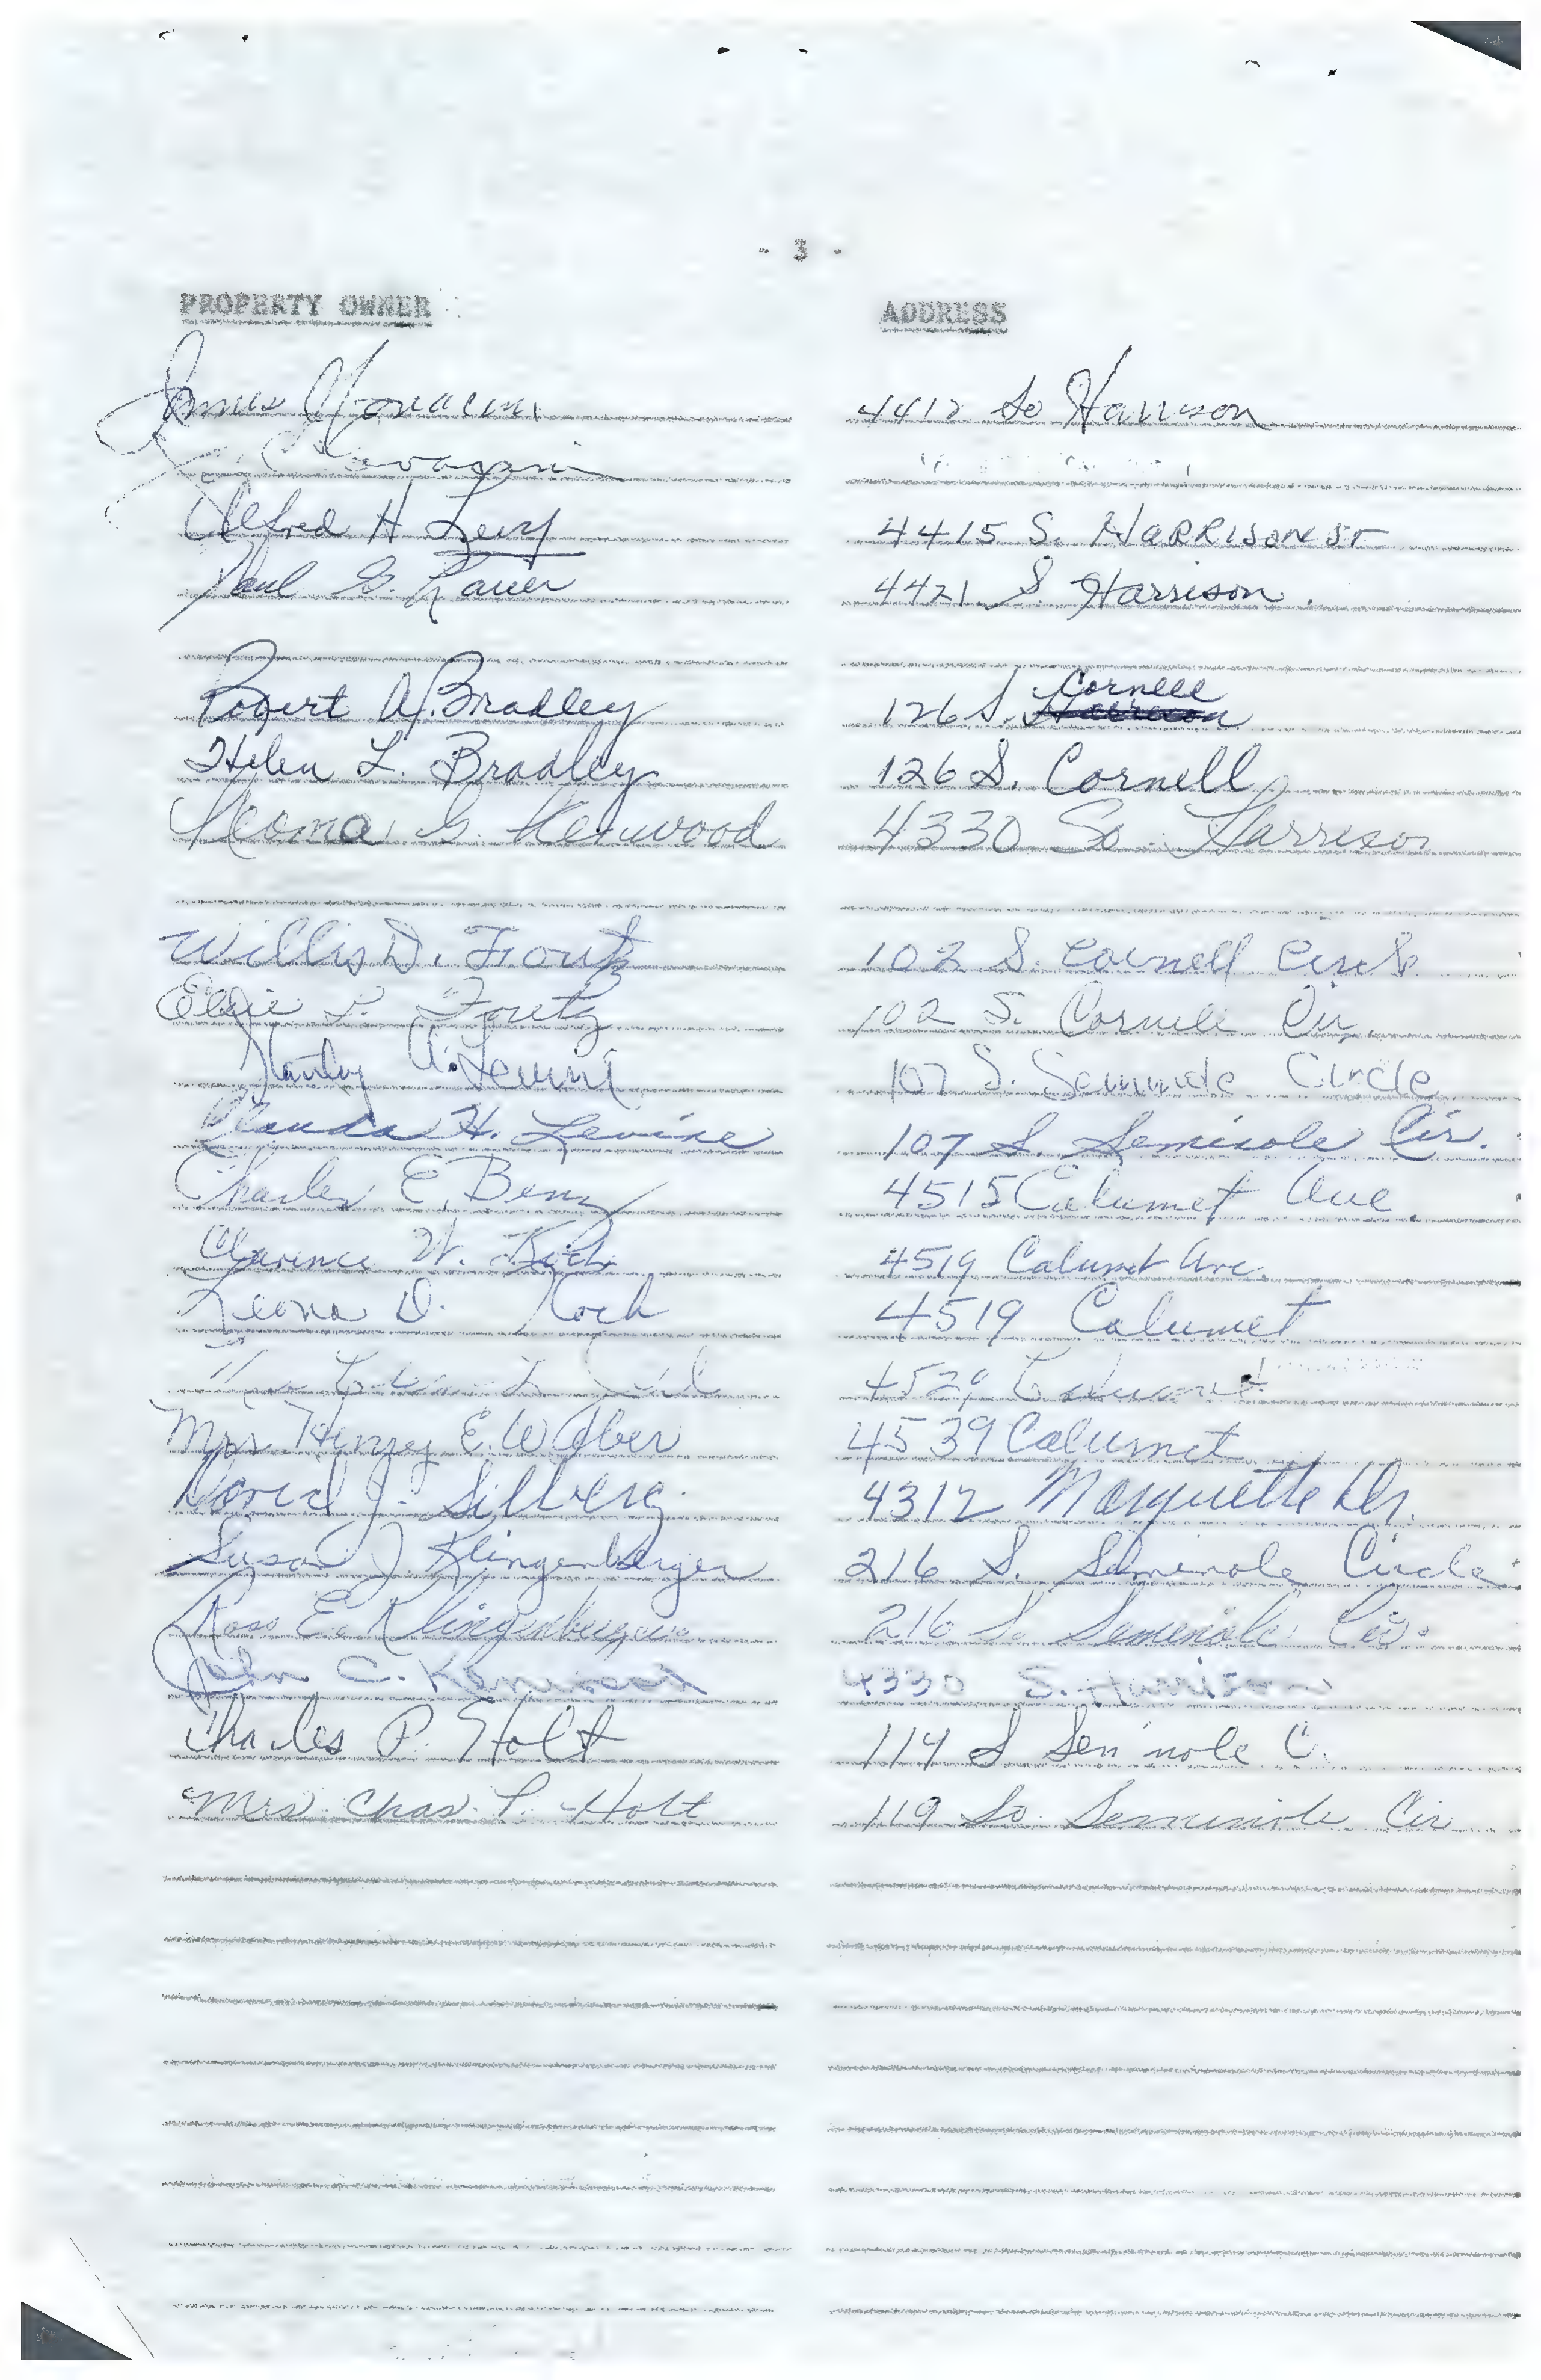 - 3 -
PROPERTY OWNER ADDRESS
James 4412 So Harrison
Alfred H Levy 4415 S. HARRISON ST
Paul G. Lauer 4421 S. Harrison.
Robert A. Bradley 126 S. Cornell
Helen L. Bradley 126 S. Cornell
G. Kenwood 4330 So. Harrison
Willis D. Foutz 102 S. Cornell
Elsie Foutz 102 S. Cornell Cir.
Stanley A. Levine 107 S. Seminole Circle
H. Levine 107 S. Seminole Cir.
Charles E. Benz 4515 Calumet Ave.
Clarence W. Koch 4519 Calumet Ave.
Leona D. Koch 4519 Calumet
Calumet
Mrs. E. Weber 4539 Calumet
J. Silberg 4312 Marquette Dr.
Susan J. Klingenberger 216 S. Seminole Circle
Ross E. Klingenberger 216 S. Seminole Cir.
John C. Kenwood 4330 S. Harrison
Charles P. Holt S Seminole C.
Mrs. Chas. P. Holt 119 So. Seminole Cir